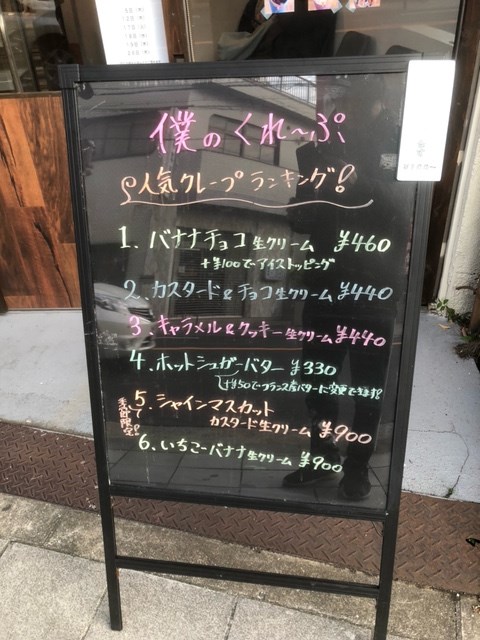 僕のくれ〜ぷ
人気クレープランキング!
1. バナナチョコ生クリーム ¥460
+¥100でアイストッピング
2. カスタード&チョコ生クリーム ¥440
3. キャラメル&クッキー生クリーム ¥440
4. ホットシュガーバター ¥330
+¥50でフランス産バターに変更できます!
5. シャインマスカット
カスタード生クリーム ¥900
6. いちごバナナ生クリーム ¥900